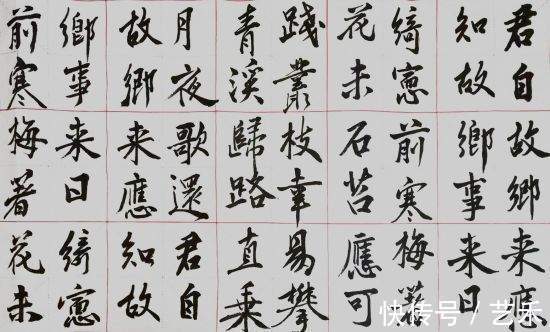 君自故鄉来應
知故鄉事来日
綺窓前寒梅著
花未石苔應可
踐叢枝幸易攀
青溪歸路直乗
月夜歌還君自
故鄉来應知故
鄉事来日綺窓
前寒梅著花未
快传号 / 艺乐